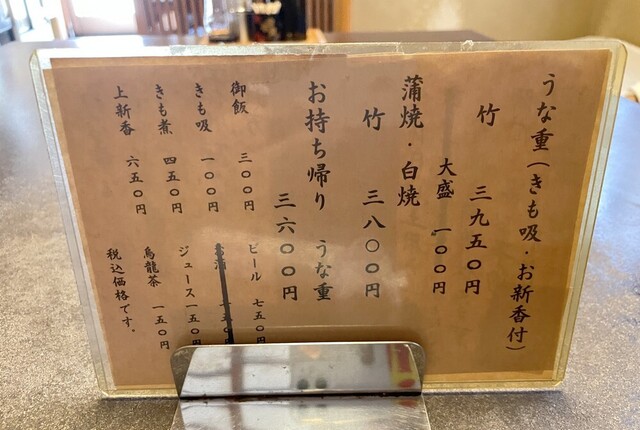 うな重（きも吸・お新香付）
竹　三九五〇円
大盛　一〇〇円
蒲焼・白焼
竹　三八〇〇円
お持ち帰り　うな重
三六〇〇円
御飯　三〇〇円
きも吸　一〇〇円
きも煮　四五〇円
上新香　六五〇円
ビール　七五〇円
ジュース　一五〇円
烏龍茶　一五〇円
税込価格です。